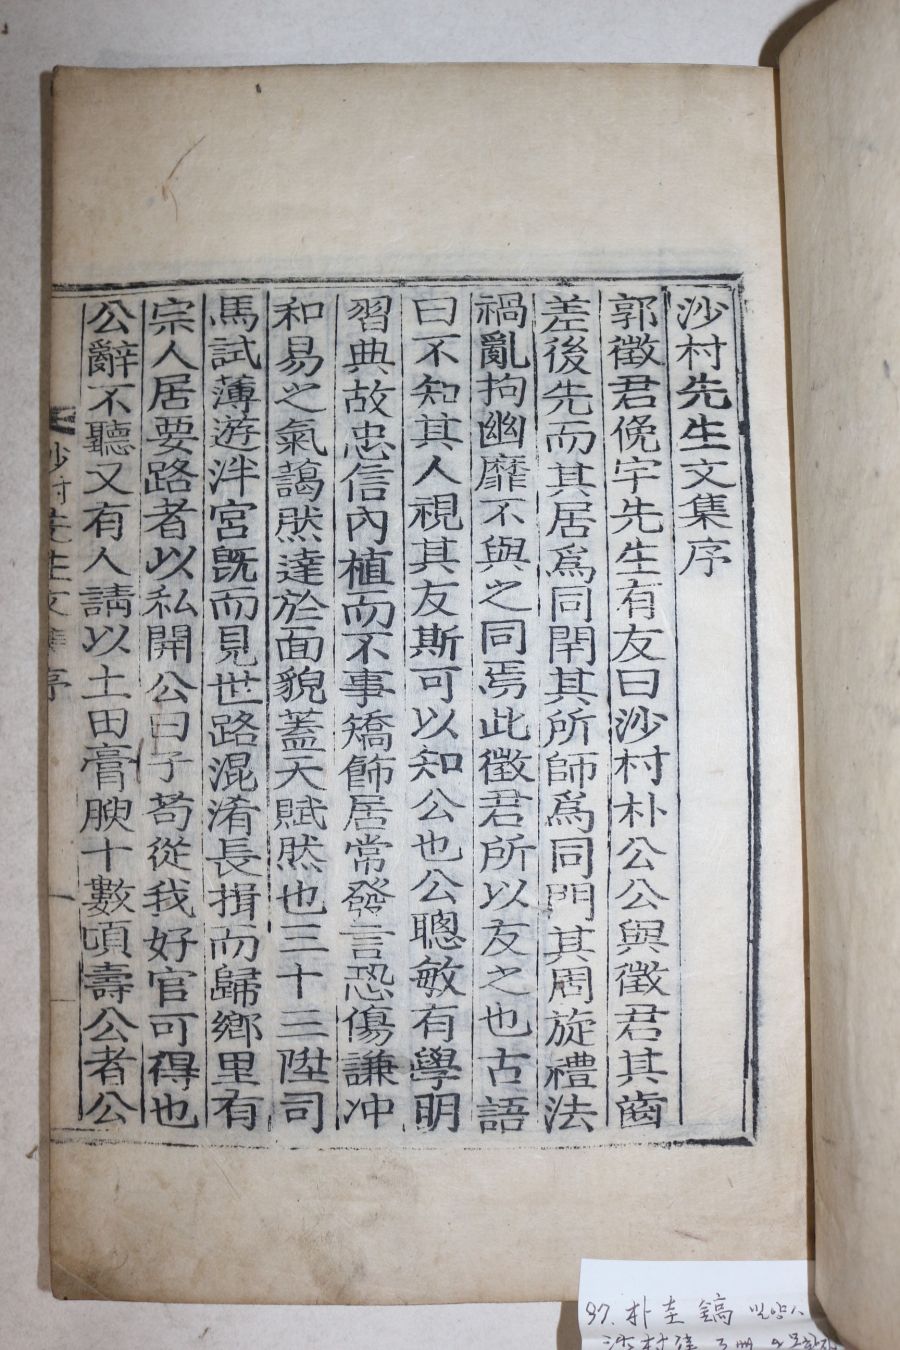 沙村先生文集序
郭徵君俛宇先生有友曰沙村朴公公與徵君其齒
差後先而其居爲同閈其所師爲同門其周旋禮法
禍亂拘幽靡不與之同焉此徵君所以友之也古語
曰不知其人視其友斯可以知公也公聰敏有學明
習典故忠信內植而不事矯飾居常發言恐傷謙冲
和易之氣藹然達於面貌蓋天賦然也三十三陞司
馬試薄遊泮宮旣而見世路混淆長揖而歸鄕里有
宗人居要路者以私開公曰子苟從我好官可得也
公辭不聽又有人請以土田膏腴十數頃壽公者公
沙村先生文集序
一
97. 朴圭鎬
沙村集